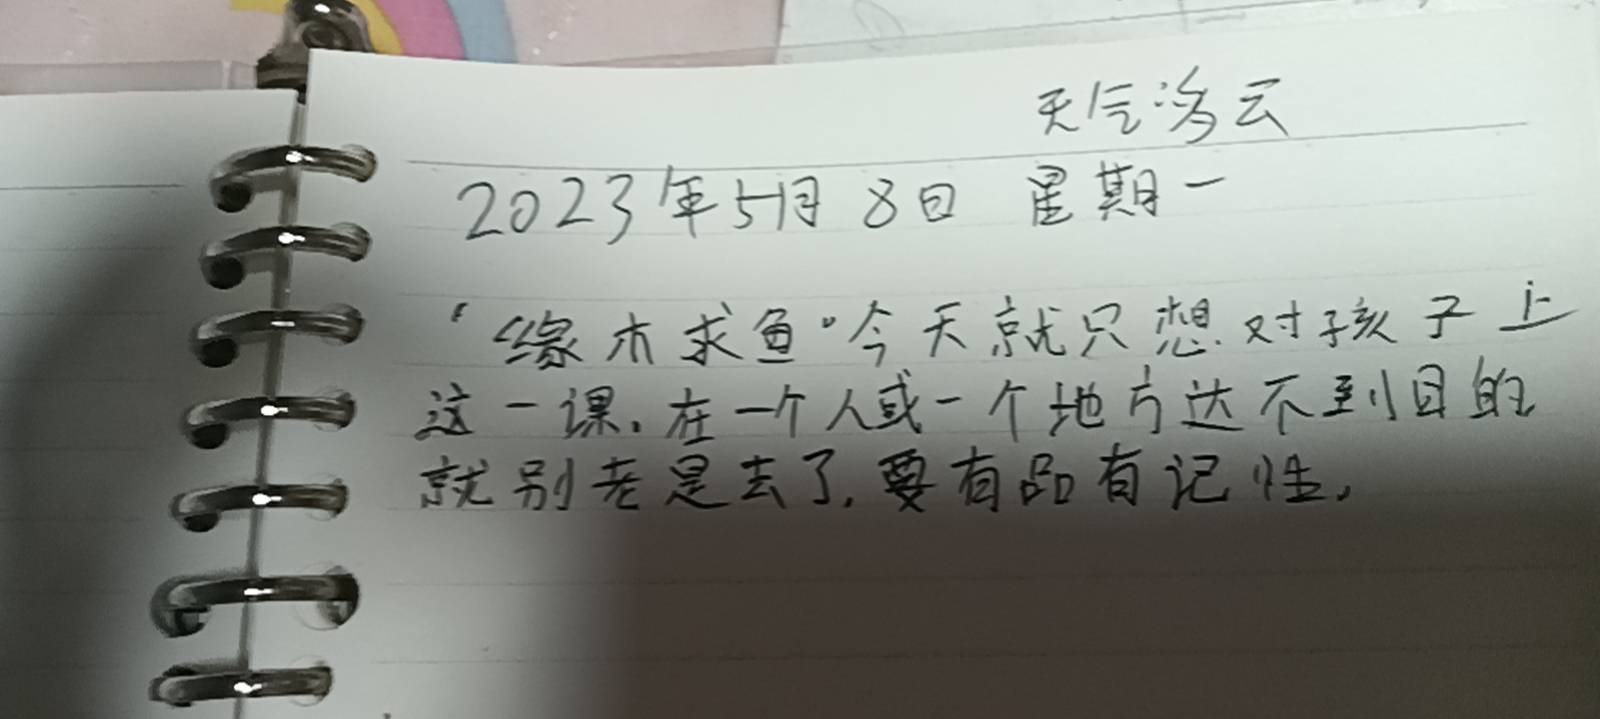 天气:多云
2023年5月8日 星期一
"缘木求鱼"今天就只想对孩子上
这一课,在一个人或一个地方达不到目的
就别老是去了,要有品有记性,